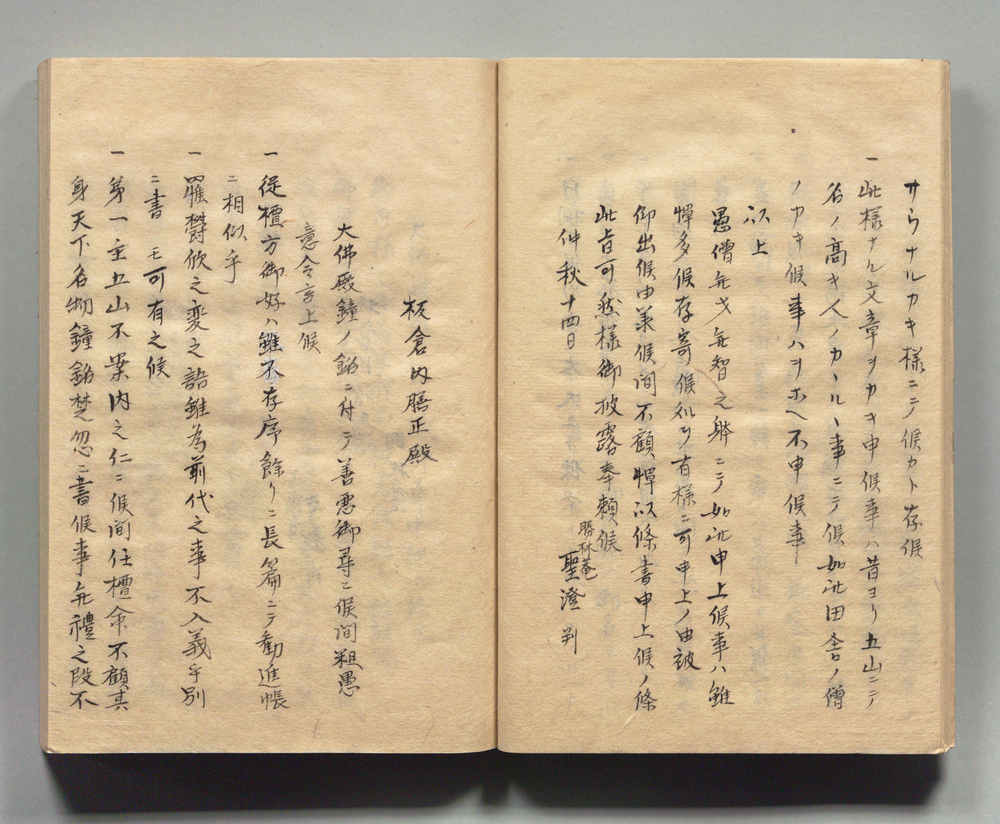 サウナルカキ様ニテ候カト存候
一 此様ナル文章ヲカキ申候事ハ昔ヨリ五山ニテノ
名ノ高キ人ノカヽル丶事ニテ候如此田舎ノ僧
ノカキ候事ハヲホヘ不申候事
以上
愚僧无才无智之躰ニテ如此申上候事ハ雖
憚多候存寄候処ヲ有様ニ可申上ノ由被
仰出候由業候間不顧憚以條書申上候ノ條
此旨可然様御披露奉頼候
勝林菴
仲秋十四日 聖澄判
板倉内膳正殿
大佛殿鐘ノ銘ニ付テ善悪御尋ニ候間粗愚
意令言上候
一 従檀方御好ハ雖不存序餘リニ長篇ニテ勧進帳
ニ相似乎
一 罹欝攸之変之語雖為前代之事不入義乎別
ニ書 モ可有之候
一 第一主五山不案内之仁ニ候間任檀命不顧其
身天下名物鐘銘楚忽ニ書候事无禮之段不